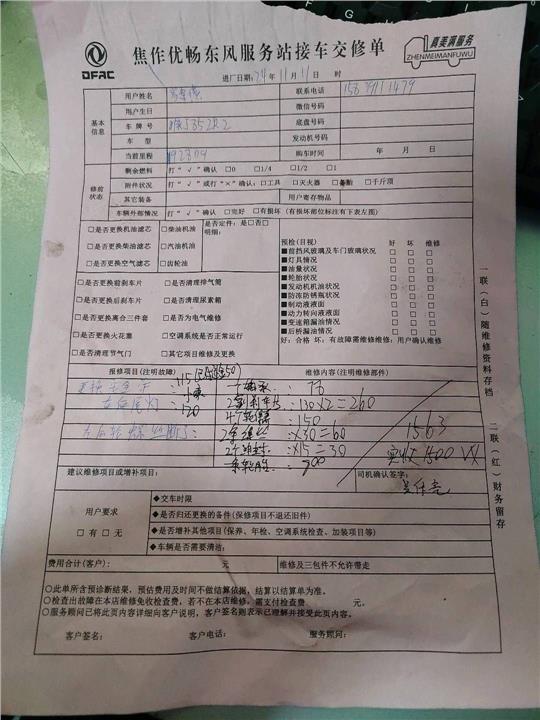 DFAC
焦作优畅东风服务站接车交修单
真美满服务
ZHENMEIMANFUWU
进厂日期:24年11月11日 时
基本信息
用户姓名
联系电话
用户生日
微信号码
车牌号
底盘号码
车型
发动机号码
当前里程 192304
购车时间 年 月 日
修前状态
剩余燃料 打“√”确认 □0 □1/4 □1/2 □1
附件状况 打“√”或打“×”确认:□工具 □灭火器 □备胎 □千斤顶
其它装备
用户寄存物品
车辆外部情况 打“√”确认 □完好 □有损坏(有损坏部位标注有下表左图)
□是否更换机油滤芯 □柴油机油
□是否更换柴油滤芯 □汽油机油
□是否更换空气滤芯 □齿轮油
是否定件:是□否□
明细:
□是否更换前刹车片 □是否清理排气筒
□是否更换后刹车片 □是否清理尿素箱
□是否更换离合三件套 □是否为电气维修
□是否更换火花塞 □空调系统是否正常运行
□是否清理节气门 □其它项目维修及更换
预检(目视) 好 坏 维修
■前挡风玻璃及车门玻璃状况 □ □ □
■灯具情况 □ □ □
■油量状况 □ □ □
■轮胎状况 □ □ □
■发动机机油状况 □ □ □
■防冻防锈瓶状况 □ □ □
■制动液液面 □ □ □
■动力转向液液面 □ □ □
■变速箱漏油情况 □ □ □
■后桥漏油情况 □ □ □
好:合格 坏:有故障需维修维修:用户确认维修
一联(白)随维修资料存档
二联(红)财务留存
报修项目(注明故障)
维修内容(注明维修部件)
130×2=260
150
×30=60
×15=30
900
1563
实收1500
建议维修项目或增补项目:
司机确认签字:
用户要求
□有 □无
◆交车时限
◆是否归还更换的备件(保修项目不退还旧件)
◆是否增补其他项目(保养、年检、空调系统检查、加装项目等)
◆车辆是否需要清洁:
费用合计(客户): 元
维修及三包件不允许带走
○此单所含预诊断结果,预估费用及时间不做结算依据,结算以结算单为准。
○检查出故障在本店维修免收检查费,若不在本店维修,需支付检查费 元。
○服务顾问已将此页内容详细向客户说明,客户签名则表示已理解并接受此页内容。
客户签名: 客户电话: 服务顾问: